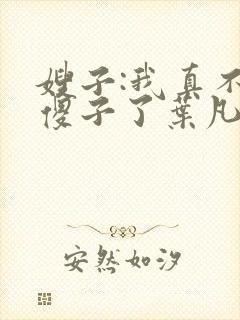 嫂子:我真不
傻子了葉凡
安然如汐